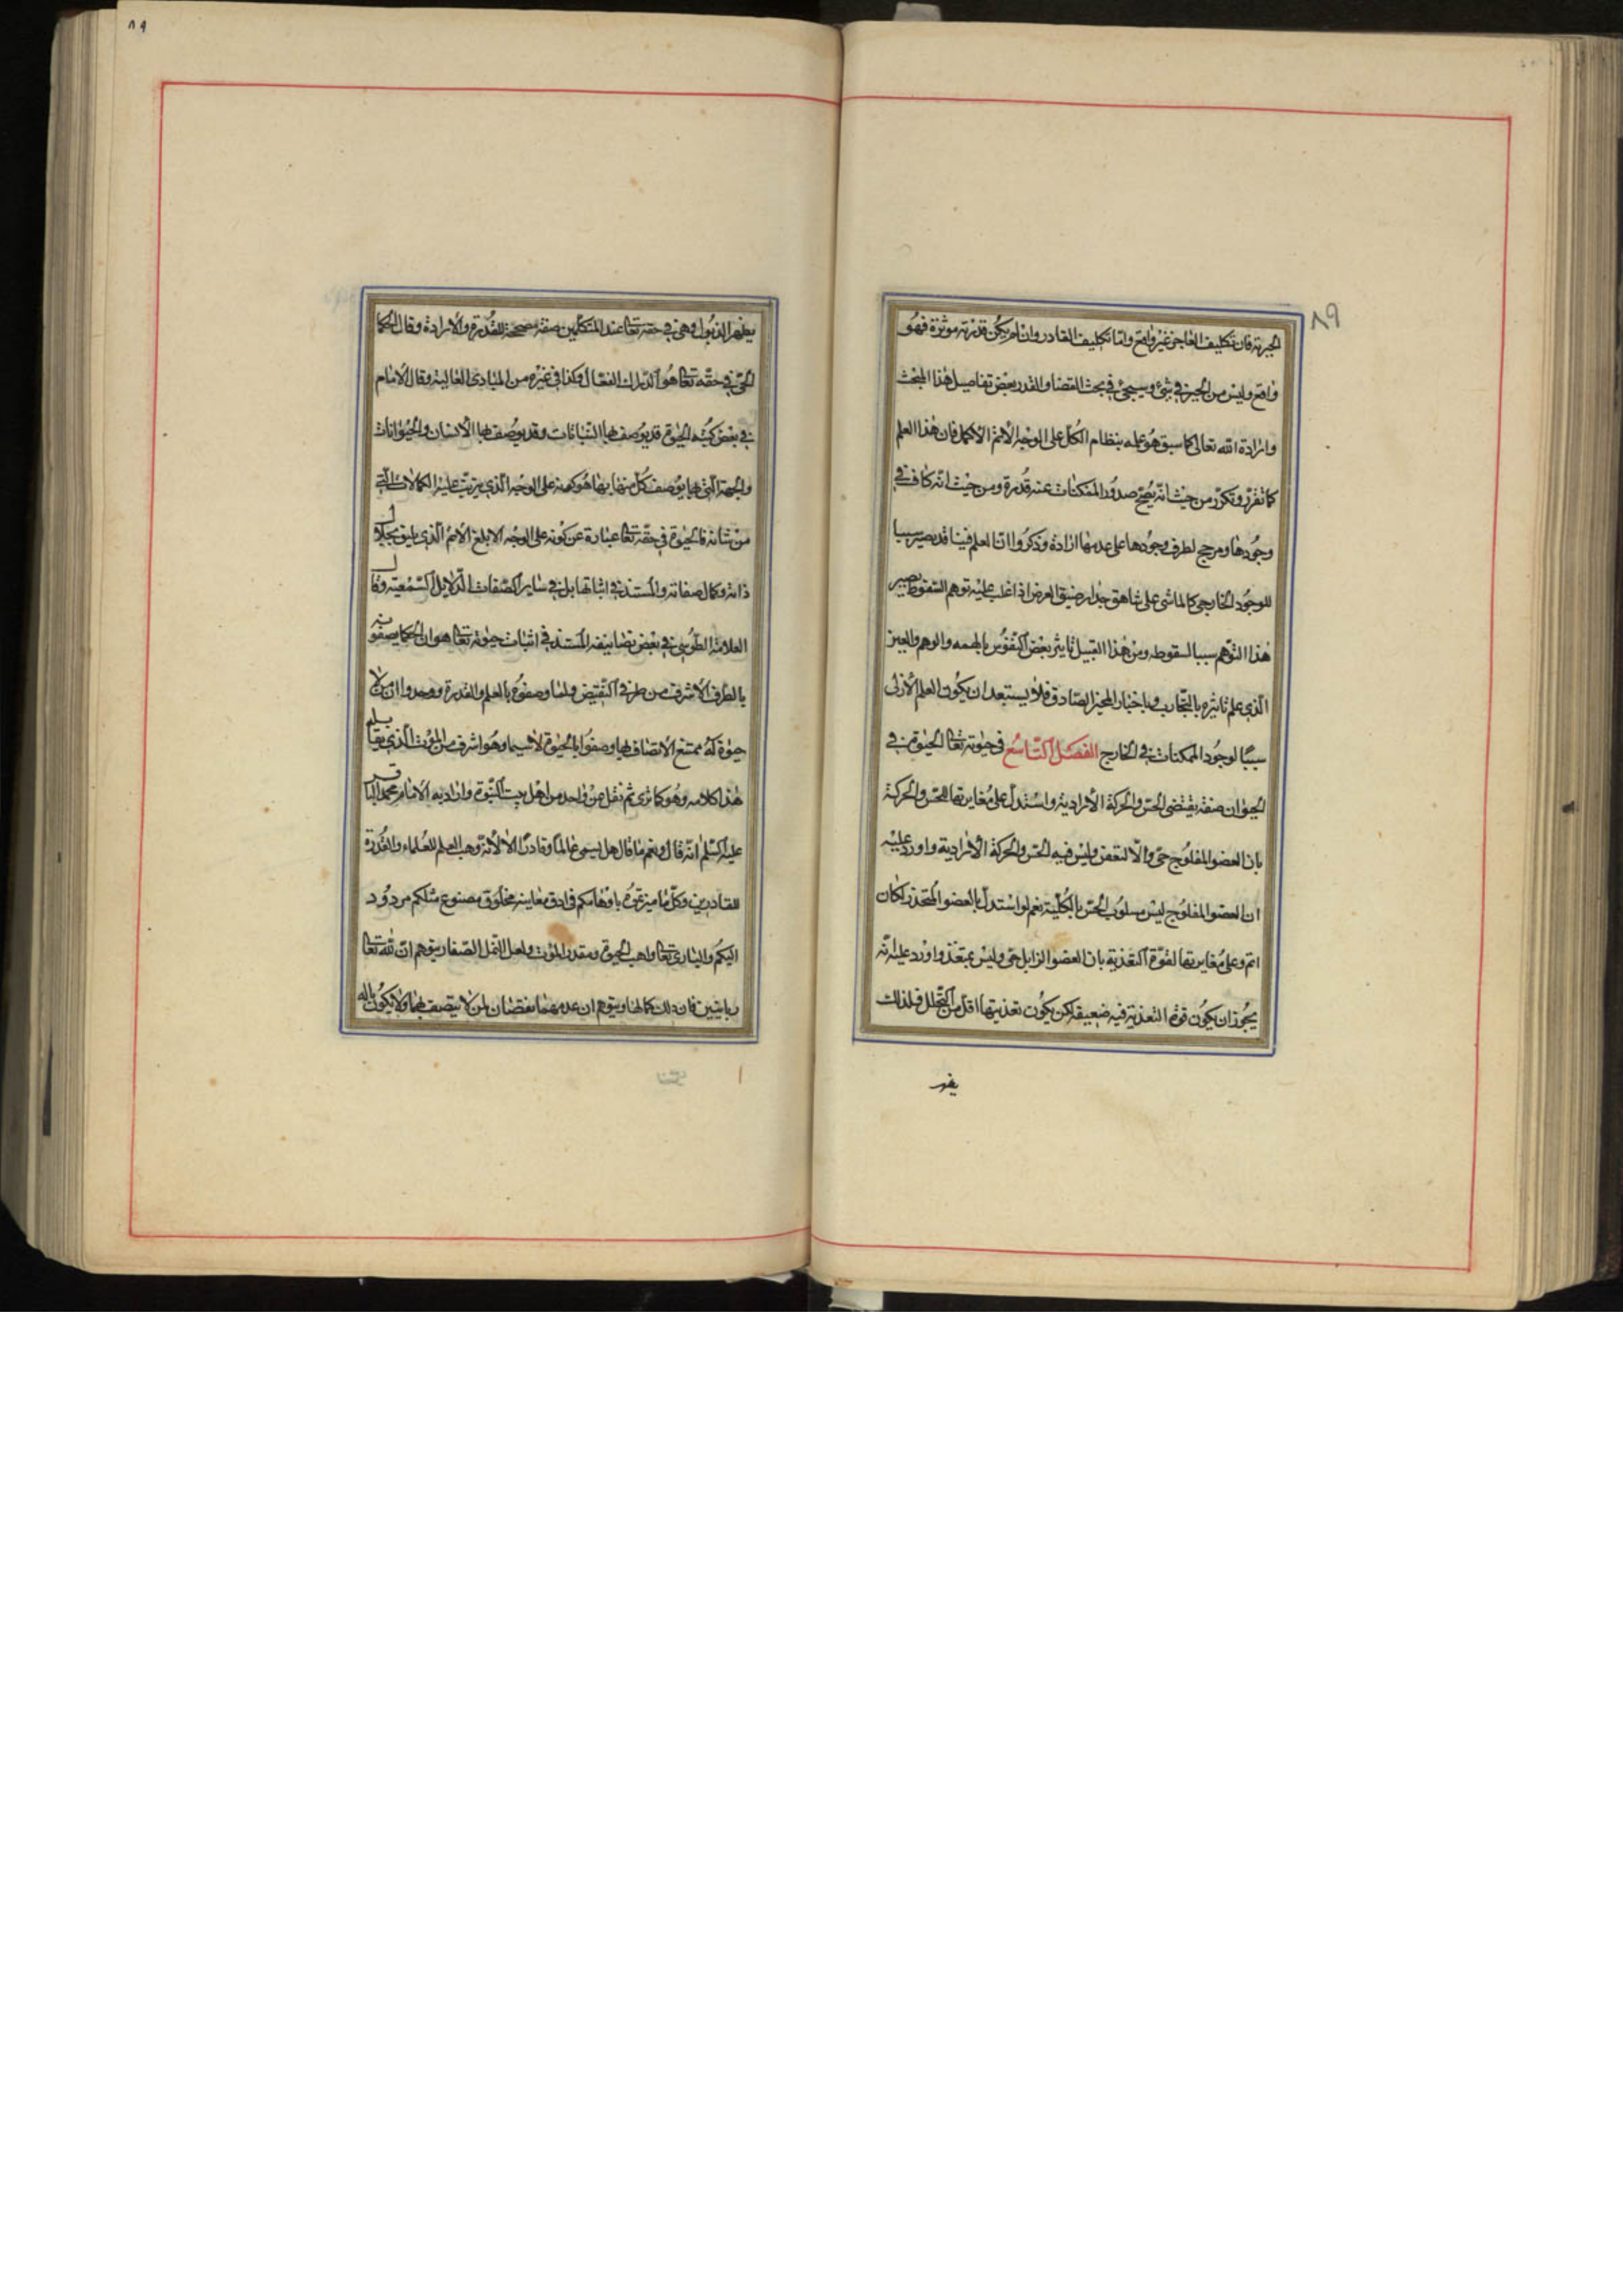 ٨٩
الجبرية فان تكليف العاجز غير واقع واما تكليف القادر وان لم يكن قدرته موثرة فهو
واقع وليس من الجبر في شئ وسيجئ في بحث القضا والقدر بعض تفاصيل هذا المبحث
وارادة الله تعالى كما سبق هو علمه بنظام الكل على الوجه الاتم الاكمل فان هذا العلم
كما تقرر وتكرر من حيث انه يصحح صدور الممكنات عنه قدرة ومن حيث انه كاف في
وجودها ومرجح لطرف وجودها على عدمها ارادة وذكروا ان العلم فينا قد يصير سببا
للوجود الخارجي كالماشي على شاهق جدار ضيق العرض اذا غلب عليه توهم السقوط يصير
هذا التوهم سببا لسقوطه ومن هذا القبيل تاثير بعض النفوس بالهمه والوهم والعين
الذي علم تاثيره بالتجارب وباخبار المخبر الصادق فلا يستبعد ان يكون العلم الازلي
سببا لوجود الممكنات في الخارج الفصل التاسع في حيوته تعالى الحيوة في
الحيوان صفة يقتضي الحس والحركة الارادية واستدل على مغايرتها للحس والحركة
بان العضو المفلوج حي والا لتعفن وليس فيه الحس والحركة الارادية واورد عليه
ان العضو المفلوج ليس مسلوب الحس بالكلية نعم لو استدل بالعضو المتخدر لكان
اتم وعلى مغايرتها لقوة التغذية بان العضو الزابل حي وليس بمتغذ واورد عليه انه
يجوز ان يكون قوة التغذية فيه ضعيفة لكن يكون تغذيتها اقل من التحلل فلذلك
٨٩
يظهر الذبول وهي في حقه تعالى عند المتكلمين صفة مصححة للقدرة والارادة وقال الحكما
الحي في حقه تعالى هو الدراك الفعال وكذا في غيره من المبادي العالية وقال الامام
في بعض كتبه الحيوة قد يوصف بها النباتات وقد يوصف بها الانسان والحيوانات
والجهة التي بها يوصف كل منها بها هو كونه على الوجه الذي يترتب عليه الكمالات التي
من شانه فالحيوة في حقه تعالى عبارة عن كونه على الوجه الابلغ الاتم الذي يليق بجلال
ذاته وكمال صفاته والمستند في اثباتها بل في ساير الصفات الدلايل السمعية وقال
العلامة الطوسي في بعض تصانيفه المستند في اثبات حيوته تعالى هو ان الحكما يصفونه
بالطرف الاشرف من طرفي النقيض ولما وصفوه بالعلم والقدرة ووجدوا ان من لا
حيوة له ممتنع الاتصاف بها وصفوا بالحيوة لا سيما وهو اشرف من الموت الذي يقابله
هذا كلامه وهو كما ترى ثم نقل عن واحد من اهل بيت النبوة واراد به الامام محمد الباقر
عليه السلم انه قال ونعم ما قال هل يسمى عالما وقادرا الا لانه وهب العلم للعلماء والقدرة
للقادرين وكل ما ميزتموه باوهامكم في ادق معاينه مخلوق مصنوع مثلكم مردود
اليكم والباري تعالى واهب الحيوة ومقدر الموت ولعل النمل الصغار يتوهم ان لله تعالى
زبانيتين فان ذلك كمالها ويتوهم ان عدمهما نقصان لمن لا يتصف بهما ولا يكون له